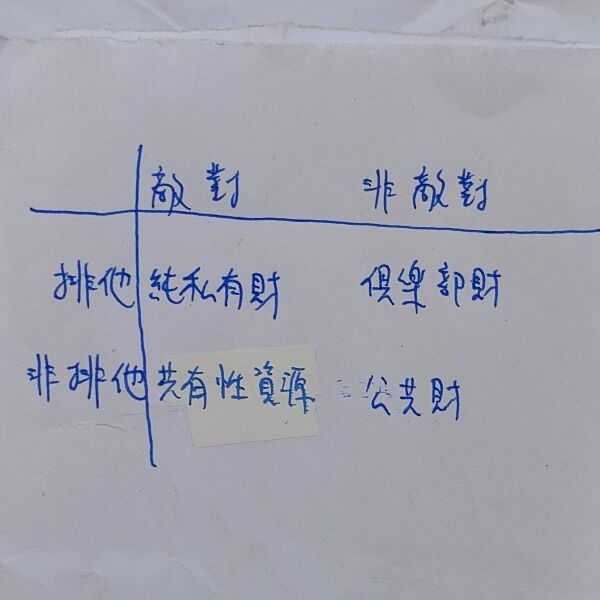 敵對 非敵對
排他 純私有財 俱樂部財
非排他 共有性資源 公共財